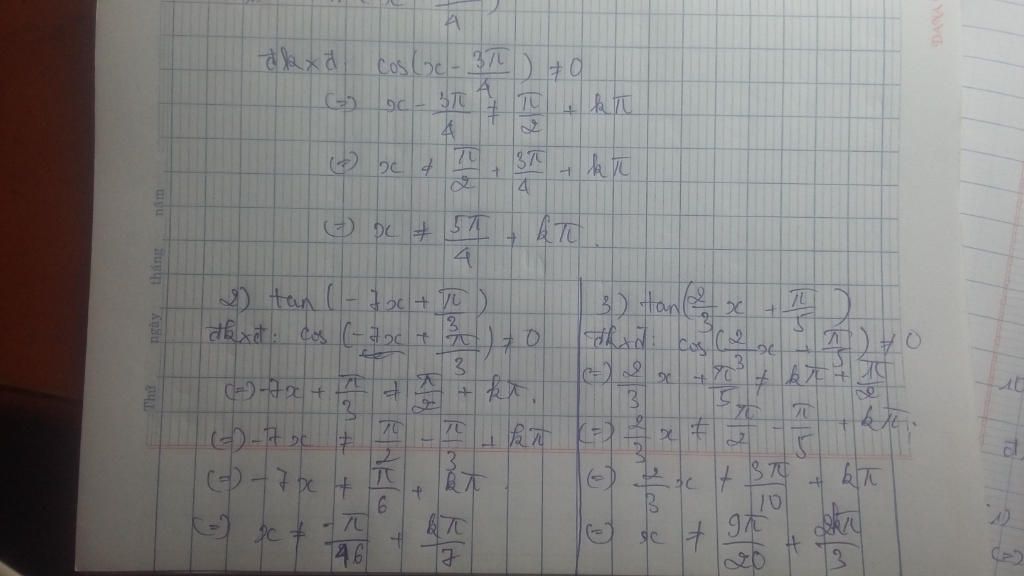 4
đkxđ: cos(x - 3π/4) ≠ 0
(=) x - 3π/4 ≠ π/2 + kπ
(=) x ≠ π/2 + 3π/4 + kπ
(=) x ≠ 5π/4 + kπ.
2) tan(-7x + π/3)
đkxđ: cos(-7x + π/3) ≠ 0
(=) -7x + π/3 ≠ π/2 + kπ.
(=) -7x ≠ π/2 - π/3 + kπ
(=) -7x ≠ π/6 + kπ.
(=) x ≠ -π/46 + kπ/7
3) tan(2/3 x + π/5)
đkxđ: cos(2/3 x + π/5) ≠ 0
(=) 2/3 x + π/5 ≠ kπ + π/2
(=) 2/3 x ≠ π/2 - π/5 + kπ.
(=) 2/3 x ≠ 3π/10 + kπ
(=) x ≠ 9π/20 + 2kπ/3
Thứ ngày tháng năm